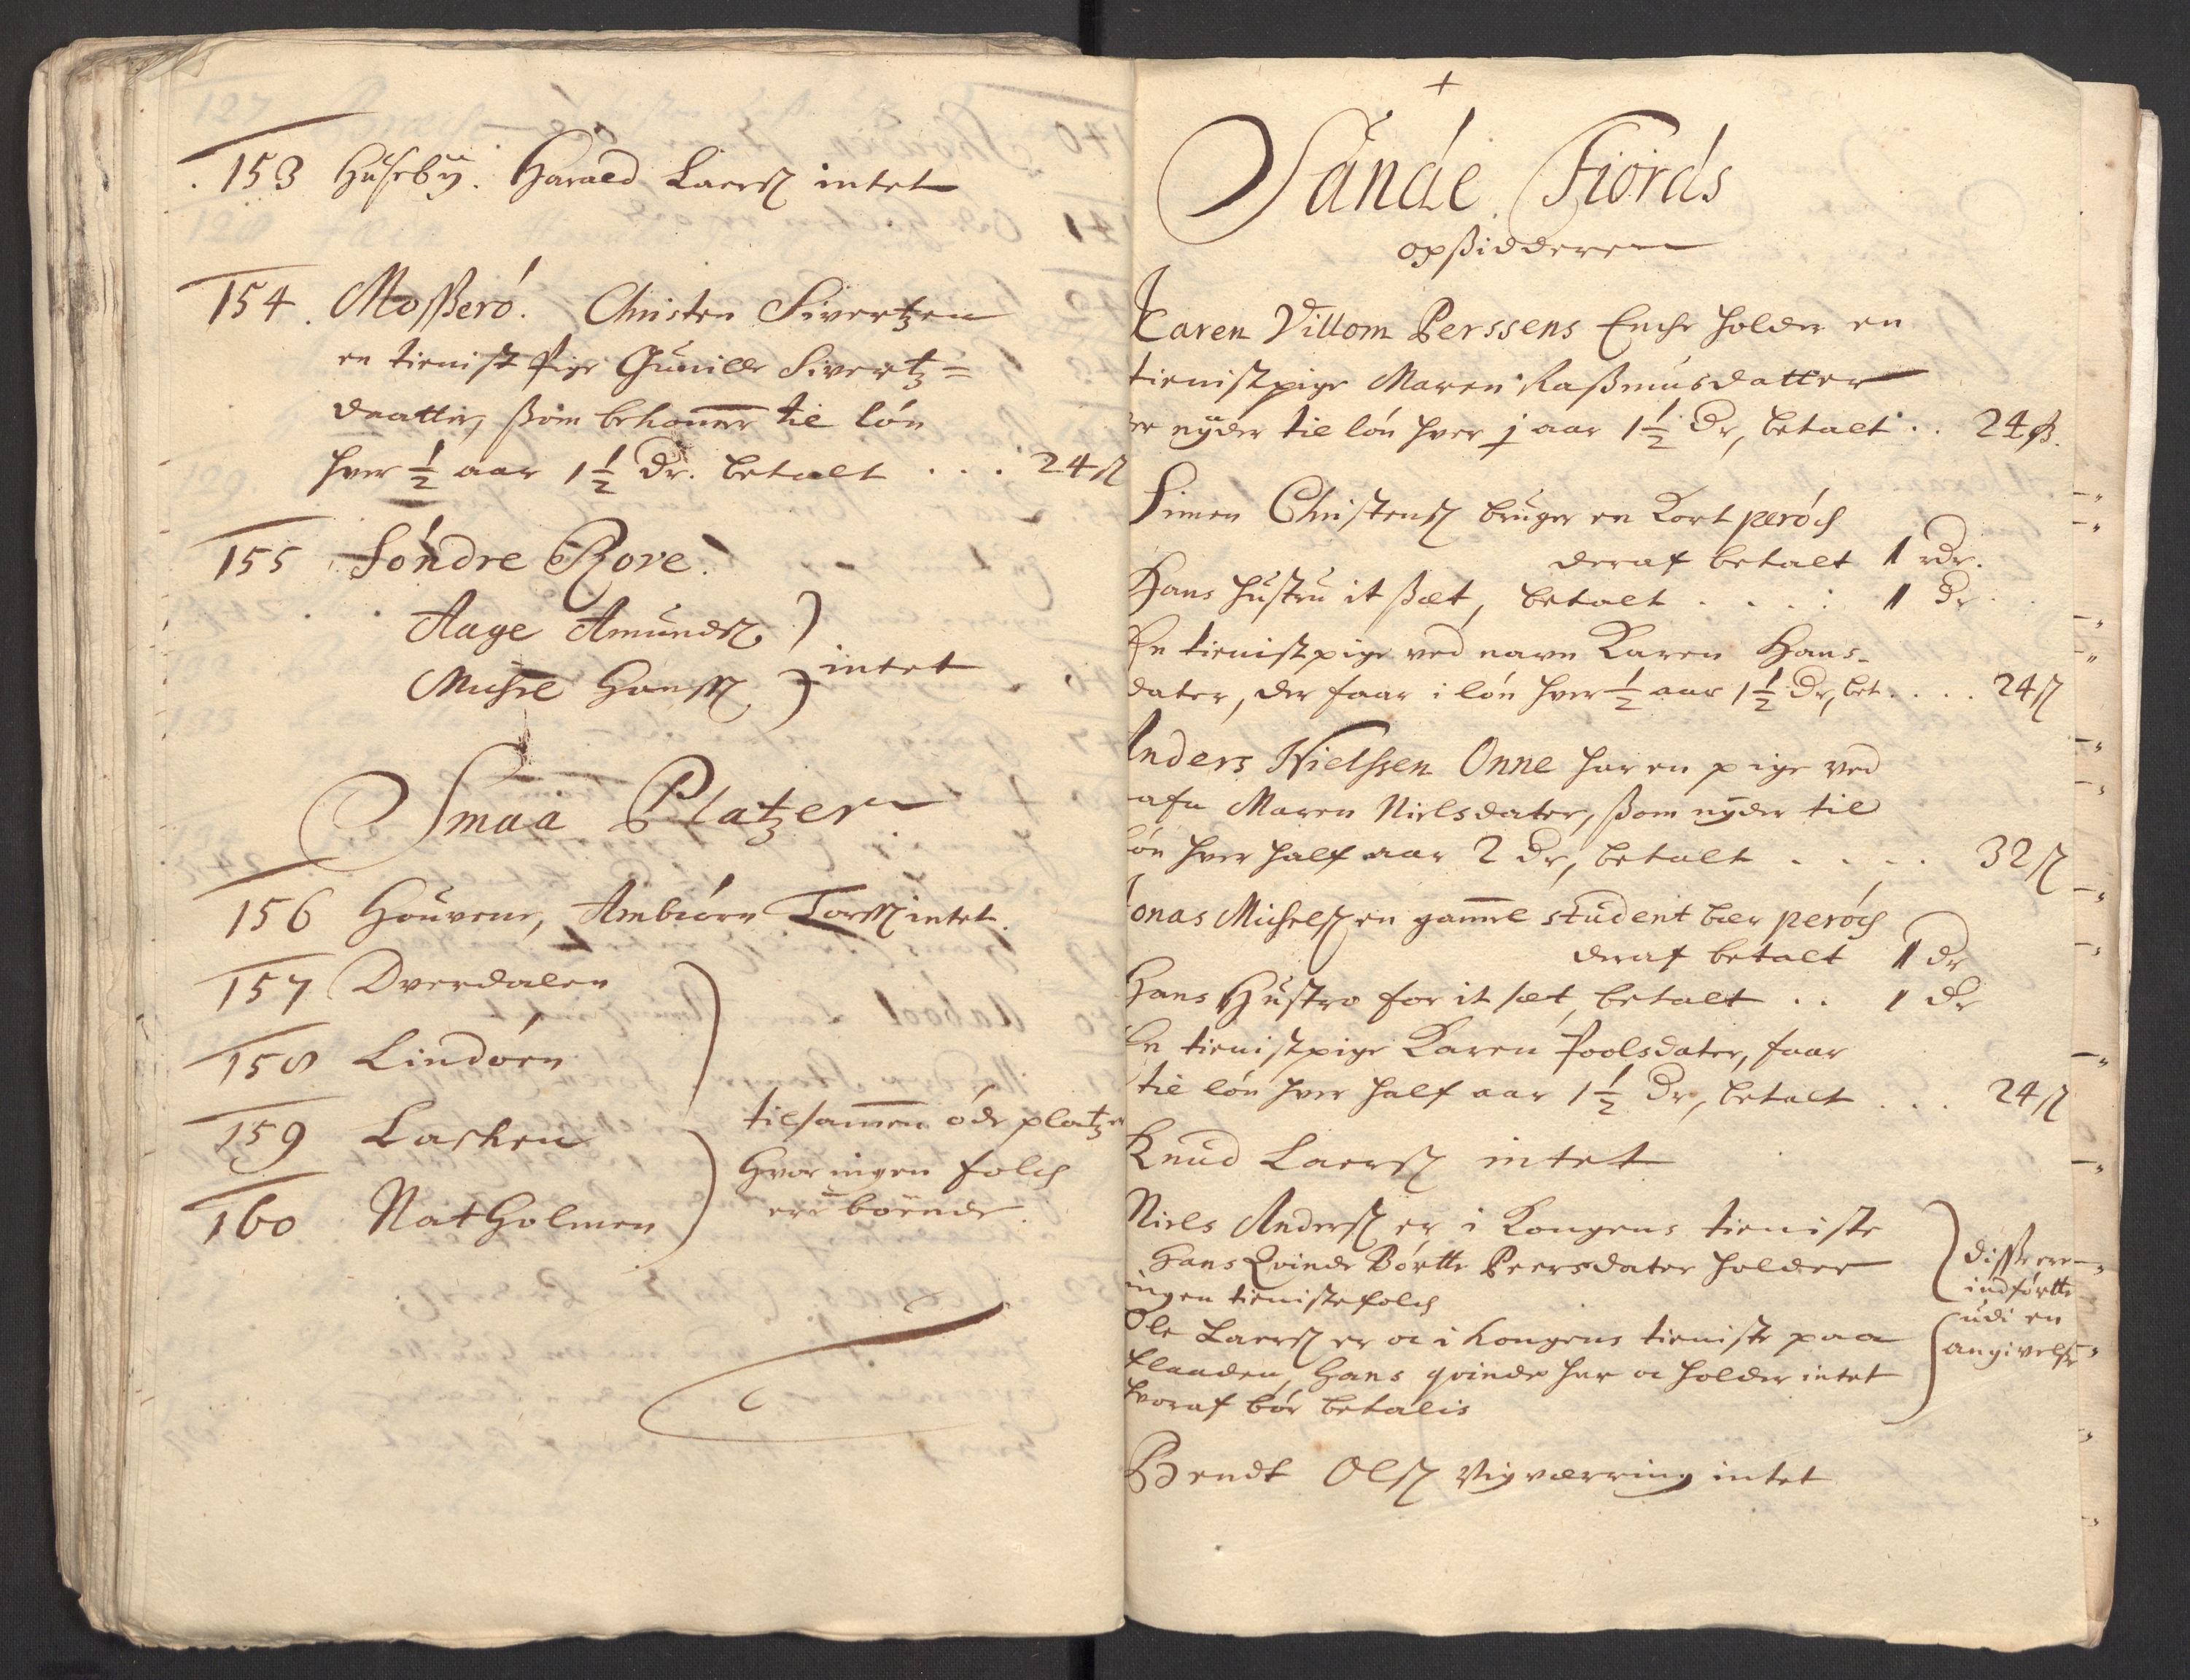 153 Huseby. Harald Laersz intet
154. Mosserö. Christen Sivertzen
en tienist Pige Gunilde Sivertz=
daatter, ßom bekommer til lön
hver ½ aar 1½ Dr. betalt . . . 24 ß
155 Söndre Rove.
Aage Amundsz
Michel Hansz
intet
Smaa Platzer
156 Houvene, Ambiörn Torsz intet.
157 Dverdalen
158 Lindöen
159 Lasken
160 Natholmen
tilsammen öde platzer
Hvor ingen folch
ere boende.
+
Sande Fiords
opßidderen
Karen Villom Perssens Enche holder en
tienistpige Maren Raßmusdatter
der nyder til lön hver j aar 1½ Dr, betalt . . 24 ß.
Simen Christensz bruger en Kort peröch
deraf betalt 1 rdr.
Hans hustru it ßæt, betalt . . . : 1 Dr
En tienistpige ved navn Karen Hans-
dater, der faar i lön hver ½ aar 1½ Dr, bet . . . . 24 ß
Anders Nielssen Onne har en pige ved
nafn Maren Nielsdater, ßom nyder til
lön hver half aar 2 Dr, betalt . . . . 32 ß
Jonas Michelsz en gammel student bær peröch
deraf betalt 1 dr
Hans Hustro for it sæt, betalt . . 1 Dr
En tienistpige Karen Poolsdater, faar
til lön hver half aar 1½ Dr, betalt . . . 24 ß
Knud Laersz intet
Niels Andersz er i Kongens tieniste
Hans Qvinde Börtte Peersdater holder
ingen tienistefolch
Ole Laersz er oc i kongens tieniste paa
flaaden, Hans qvinde har oc holder intet
hvoraf bör betalis
disse ere
indförtte
udi en
angivelse
Bendt Olsz Vigværring intet